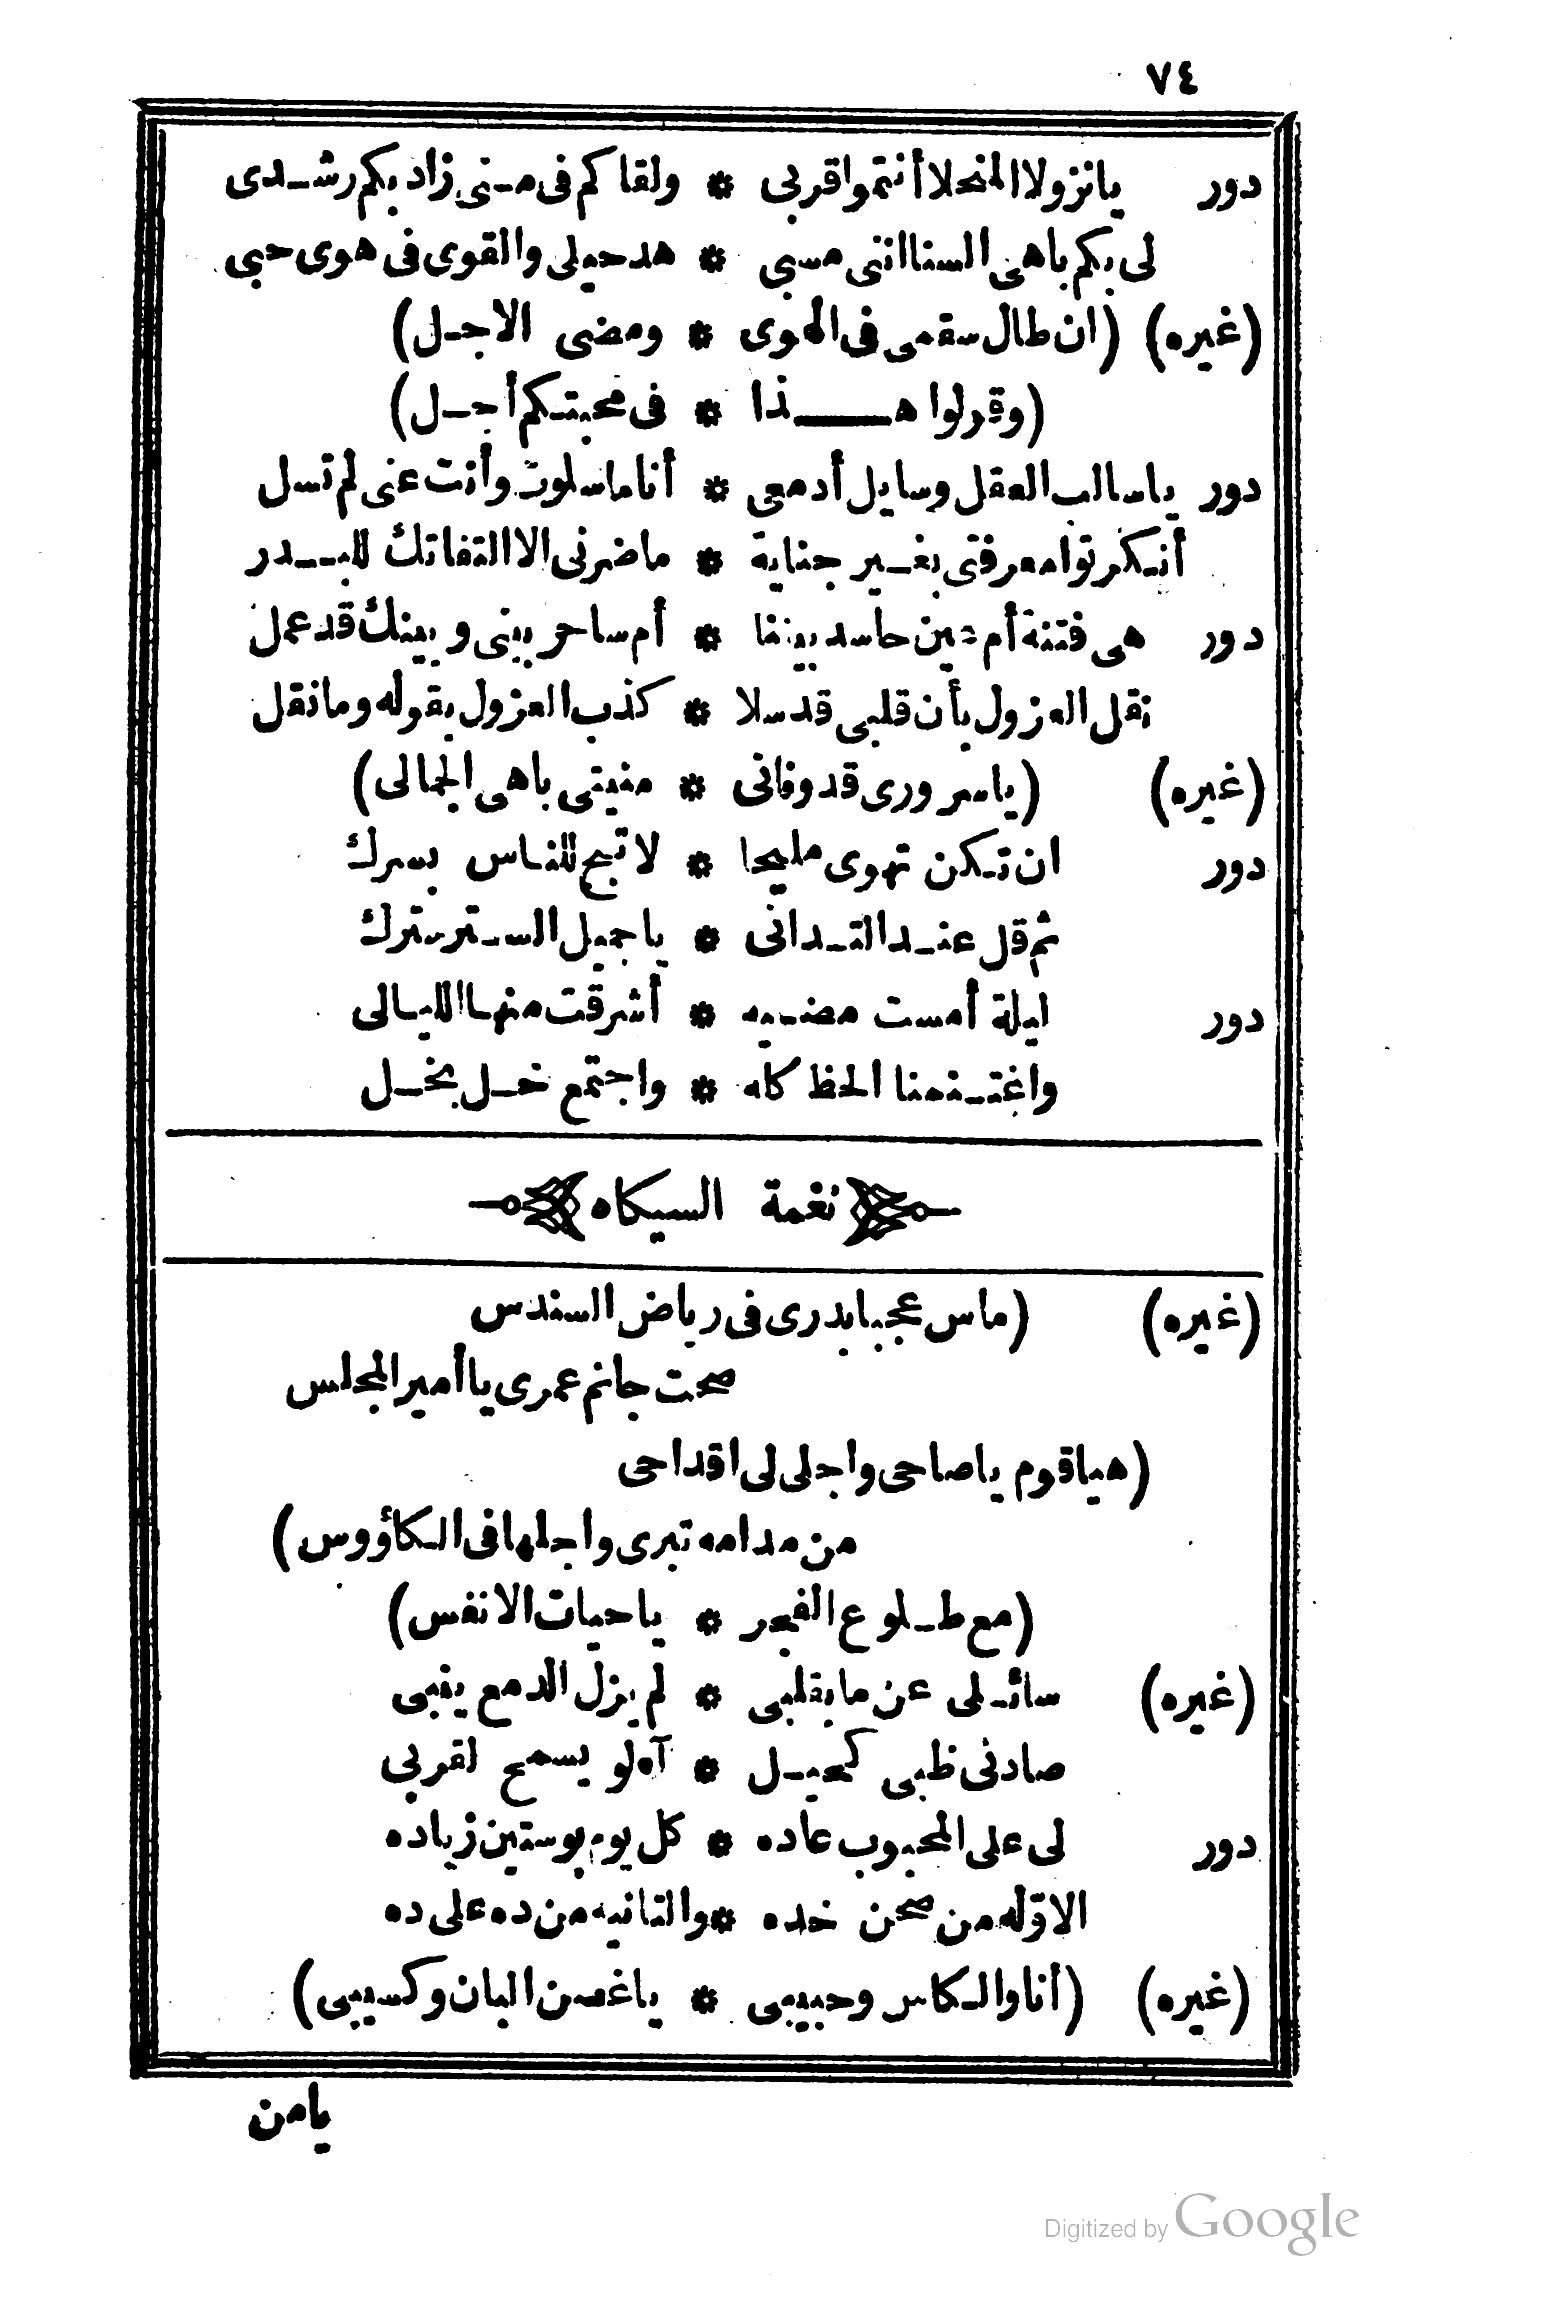 ٧٤
دور يا نزولا المنحلا أنتموا قربى * ولقاكم فى منى زاد بكم رشدى
لى بكم باهى السنا اننى مسبى * هد حيلى والقوى فى هوى حبى
(غيره) (ان طال سقمى فى الهوى * ومضى الاجل)
(وقرلوا هذا * فى محبتكم أجل)
دور ياسالب العقل وسايل أدمعى * أنا ما سلوت وأنت عنى لم تسل
أنكرتوا معرفتى بغير جناية * ما ضرنى الا التفاتك للبدر
دور هى فتنة أم عين حاسد بيننا * أم ساحر بينى وبينك قد عمل
نقل العزول بأن قلبى قد سلا * كذب العزول بقوله وما نقل
(غيره) (ياسرورى قد وفانى * منيتى باهى الجمالى)
دور ان تكن تهوى مليحا * لا تبح للناس بسرك
ثم قل عند التدانى * ياجميل الستر سترك
دور ليلة أمست مضيه * أشرقت منها الليالى
واغتنمنا الحظ كله * واجتمع خل بخل
نغمة السيكاه
(غيره) (ماس عجبا بدرى فى رياض السندس
صحت جانم عمرى يا أمير المجلس
(هيا قوم ياصاحى واجلى لى اقداحى
من مدامه تبرى واجلها فى الكاؤوس)
(مع طلوع الفجر * ياحيات الانفس)
(غيره) سائلى عن ما بقلبى * لم يزل الدمع ينبى
صادنى ظبى كحيل * آه لو يسمح لقربى
دور لى على المحبوب عاده * كل يوم بوستين زياده
الاوّله من صحن خده * والتانيه من ده على ده
(غيره) (أنا والكاس وحبيبى * ياغصن البان وكسيبى)
يامن
Digitized by Google